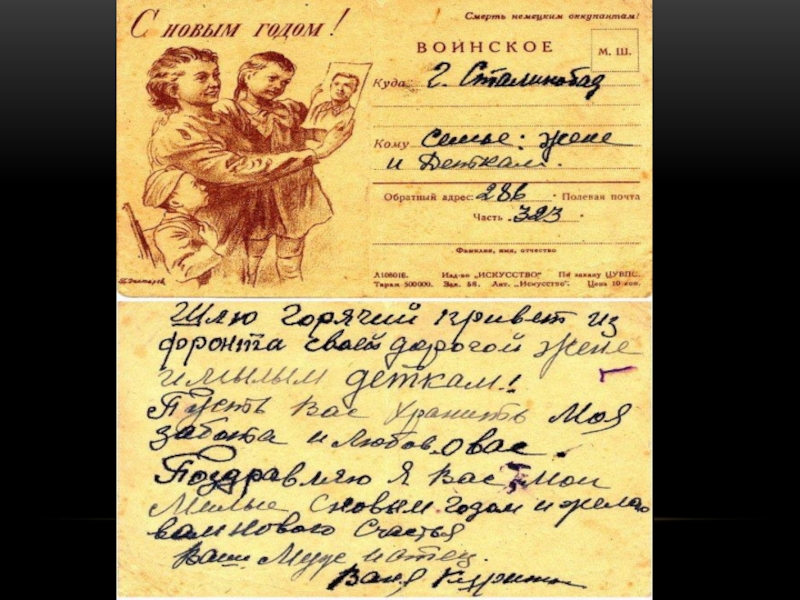 С новым годом!
Смерть немецким оккупантам!
ВОИНСКОЕ
М. Ш.
Куда г. Сталинобад
Кому семье: жене
и Деткам.
Обратный адрес: 286 Полевая почта
Часть 323
Фамилия, имя, отчество
Л10601Е. Изд-во „ИСКУССТВО“ По заказу ЦУВПС.
Тираж 500000. Зак. 58. Лит. „Искусство“. Цена 10 коп.
Шлю горячий привет из
фронта своей дорогой жене
и милым деткам!
Пусть Вас хранить Моя
забота и любов о вас.
Поздравляю я Вас Мои
Милые с новым годом и желаю
вам нового счастья
Ваш Муж и отец.
Ваня